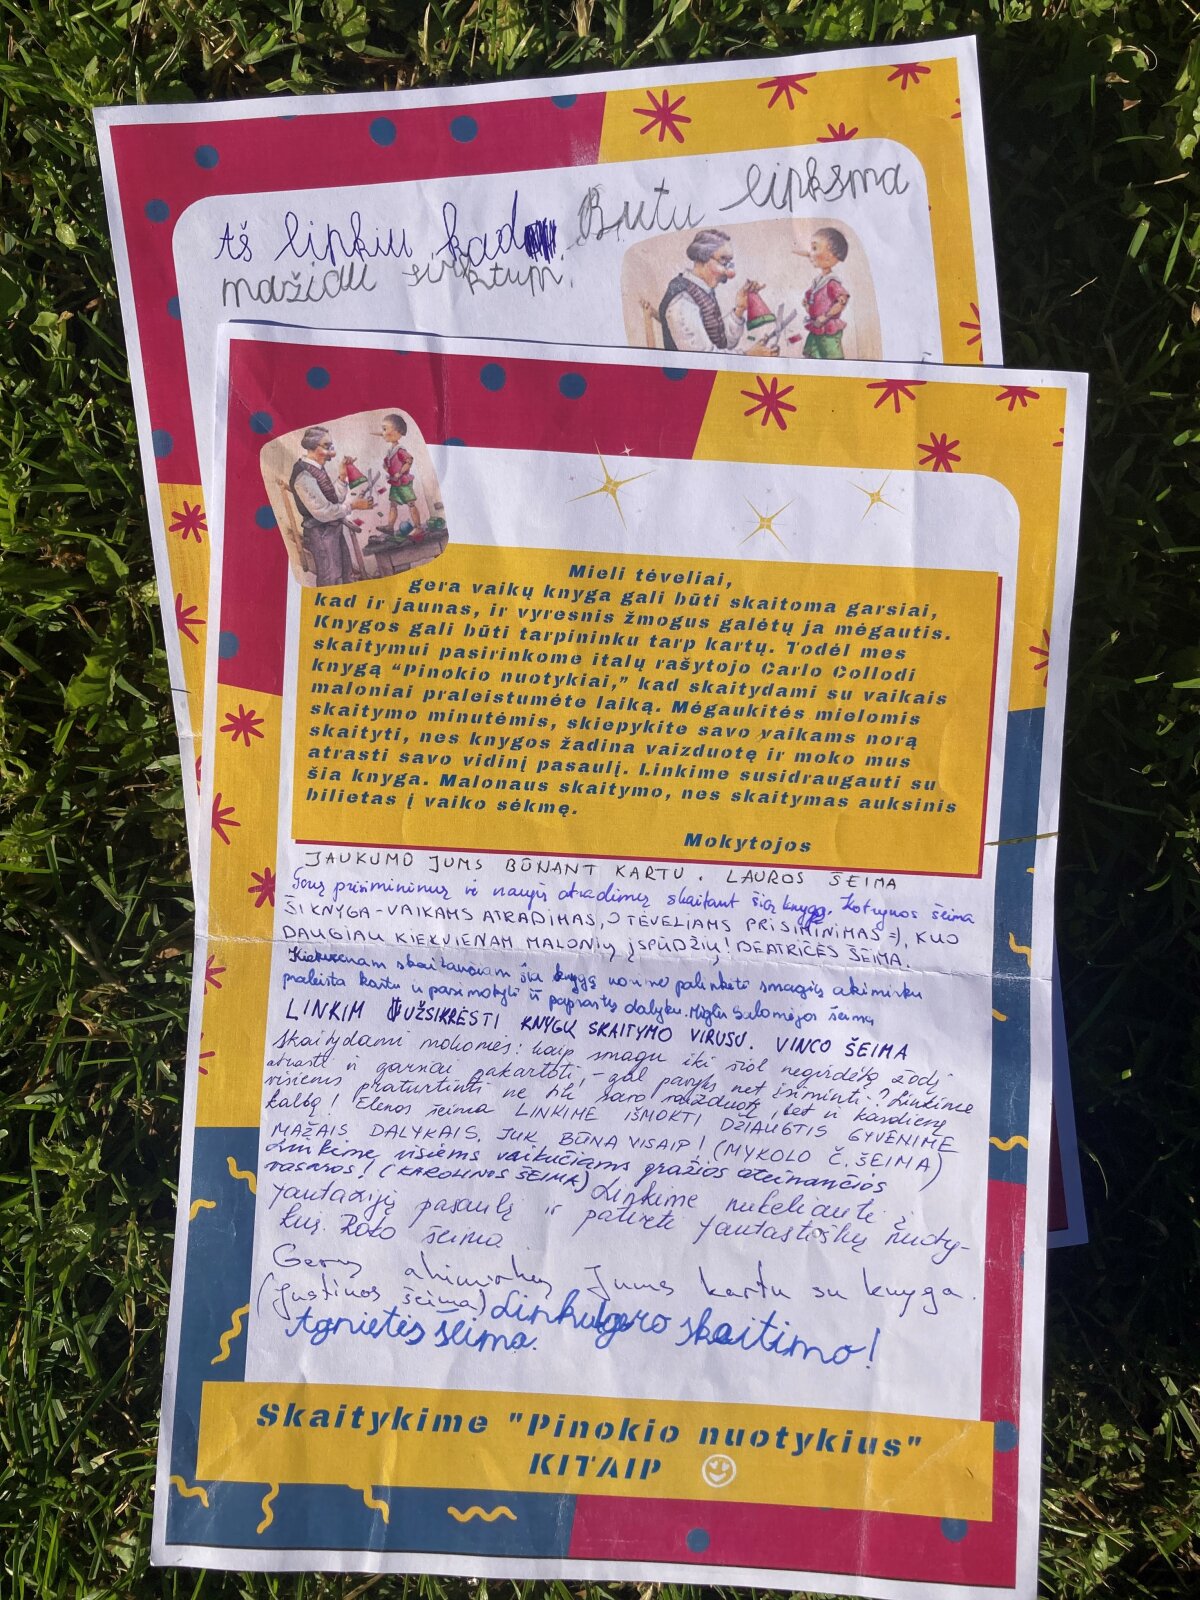 Aš linkiu kad Butu linksma
mažiau sirktum.
Mieli tėveliai,
gera vaikų knyga gali būti skaitoma garsiai,
kad ir jaunas, ir vyresnis žmogus galėtų ja mėgautis.
Knygos gali būti tarpininku tarp kartų. Todėl mes
skaitymui pasirinkome italų rašytojo Carlo Collodi
knygą “Pinokio nuotykiai,” kad skaitydami su vaikais
maloniai praleistumėte laiką. Mėgaukitės mielomis
skaitymo minutėmis, skiepykite savo vaikams norą
skaityti, nes knygos žadina vaizduotę ir moko mus
atrasti savo vidinį pasaulį. Linkime susidraugauti su
šia knyga. Malonaus skaitymo, nes skaitymas auksinis
bilietas į vaiko sėkmę.
Mokytojos
JAUKUMO JUMS BŪNANT KARTU. LAUROS ŠEIMA
prisiminimų ir naujų atradimų skaitant šią knygą. Kotrynos šeima
ŠI KNYGA-VAIKAMS ATRADIMAS, O TĖVELIAMS PRISIMINIMAS =), KUO
DAUGIAU KIEKVIENAM MALONIŲ ĮSPŪDŽIŲ! BEATRIČĖS ŠEIMA.
Kiekvienam skaitančiam šia knygą norime palinkėti smagių akimirkų
praleista kartu ir pasimokyti iš paprastų dalykų. Salomėjos šeima
LINKIM UŽSIKRĖSTI KNYGŲ SKAITYMO VIRUSU. VINCO ŠEIMA
Skaitydami mokomės: kaip smagu iki šiol negirdėtą žodį
atrasti ir garsiai pakartoti, - gal pavyks net įsiminti? Linkime
visiems praturtinti ne tik savo vaizduotę, bet ir kasdienę
kalbą! Elenos šeima LINKIME IŠMOKTI DŽIAUGTIS GYVENIME
MAŽAIS DALYKAIS. JUK BŪNA VISAIP! (MYKOLO Č. ŠEIMA)
Linkime visiems vaikučiams gražios ateinančios
vasaros! (KAROLINOS ŠEIMA) Linkime nukeliauti į
fantazijų pasaulį ir patirti fantastiškų nuoty-
kių. Roko šeima
Gerų akimirkų Jums kartu su knyga.
(Justinos šeima) Linkiu gero skaitimo!
Agnietės šeima.
Skaitykime "Pinokio nuotykius"
KITAIP